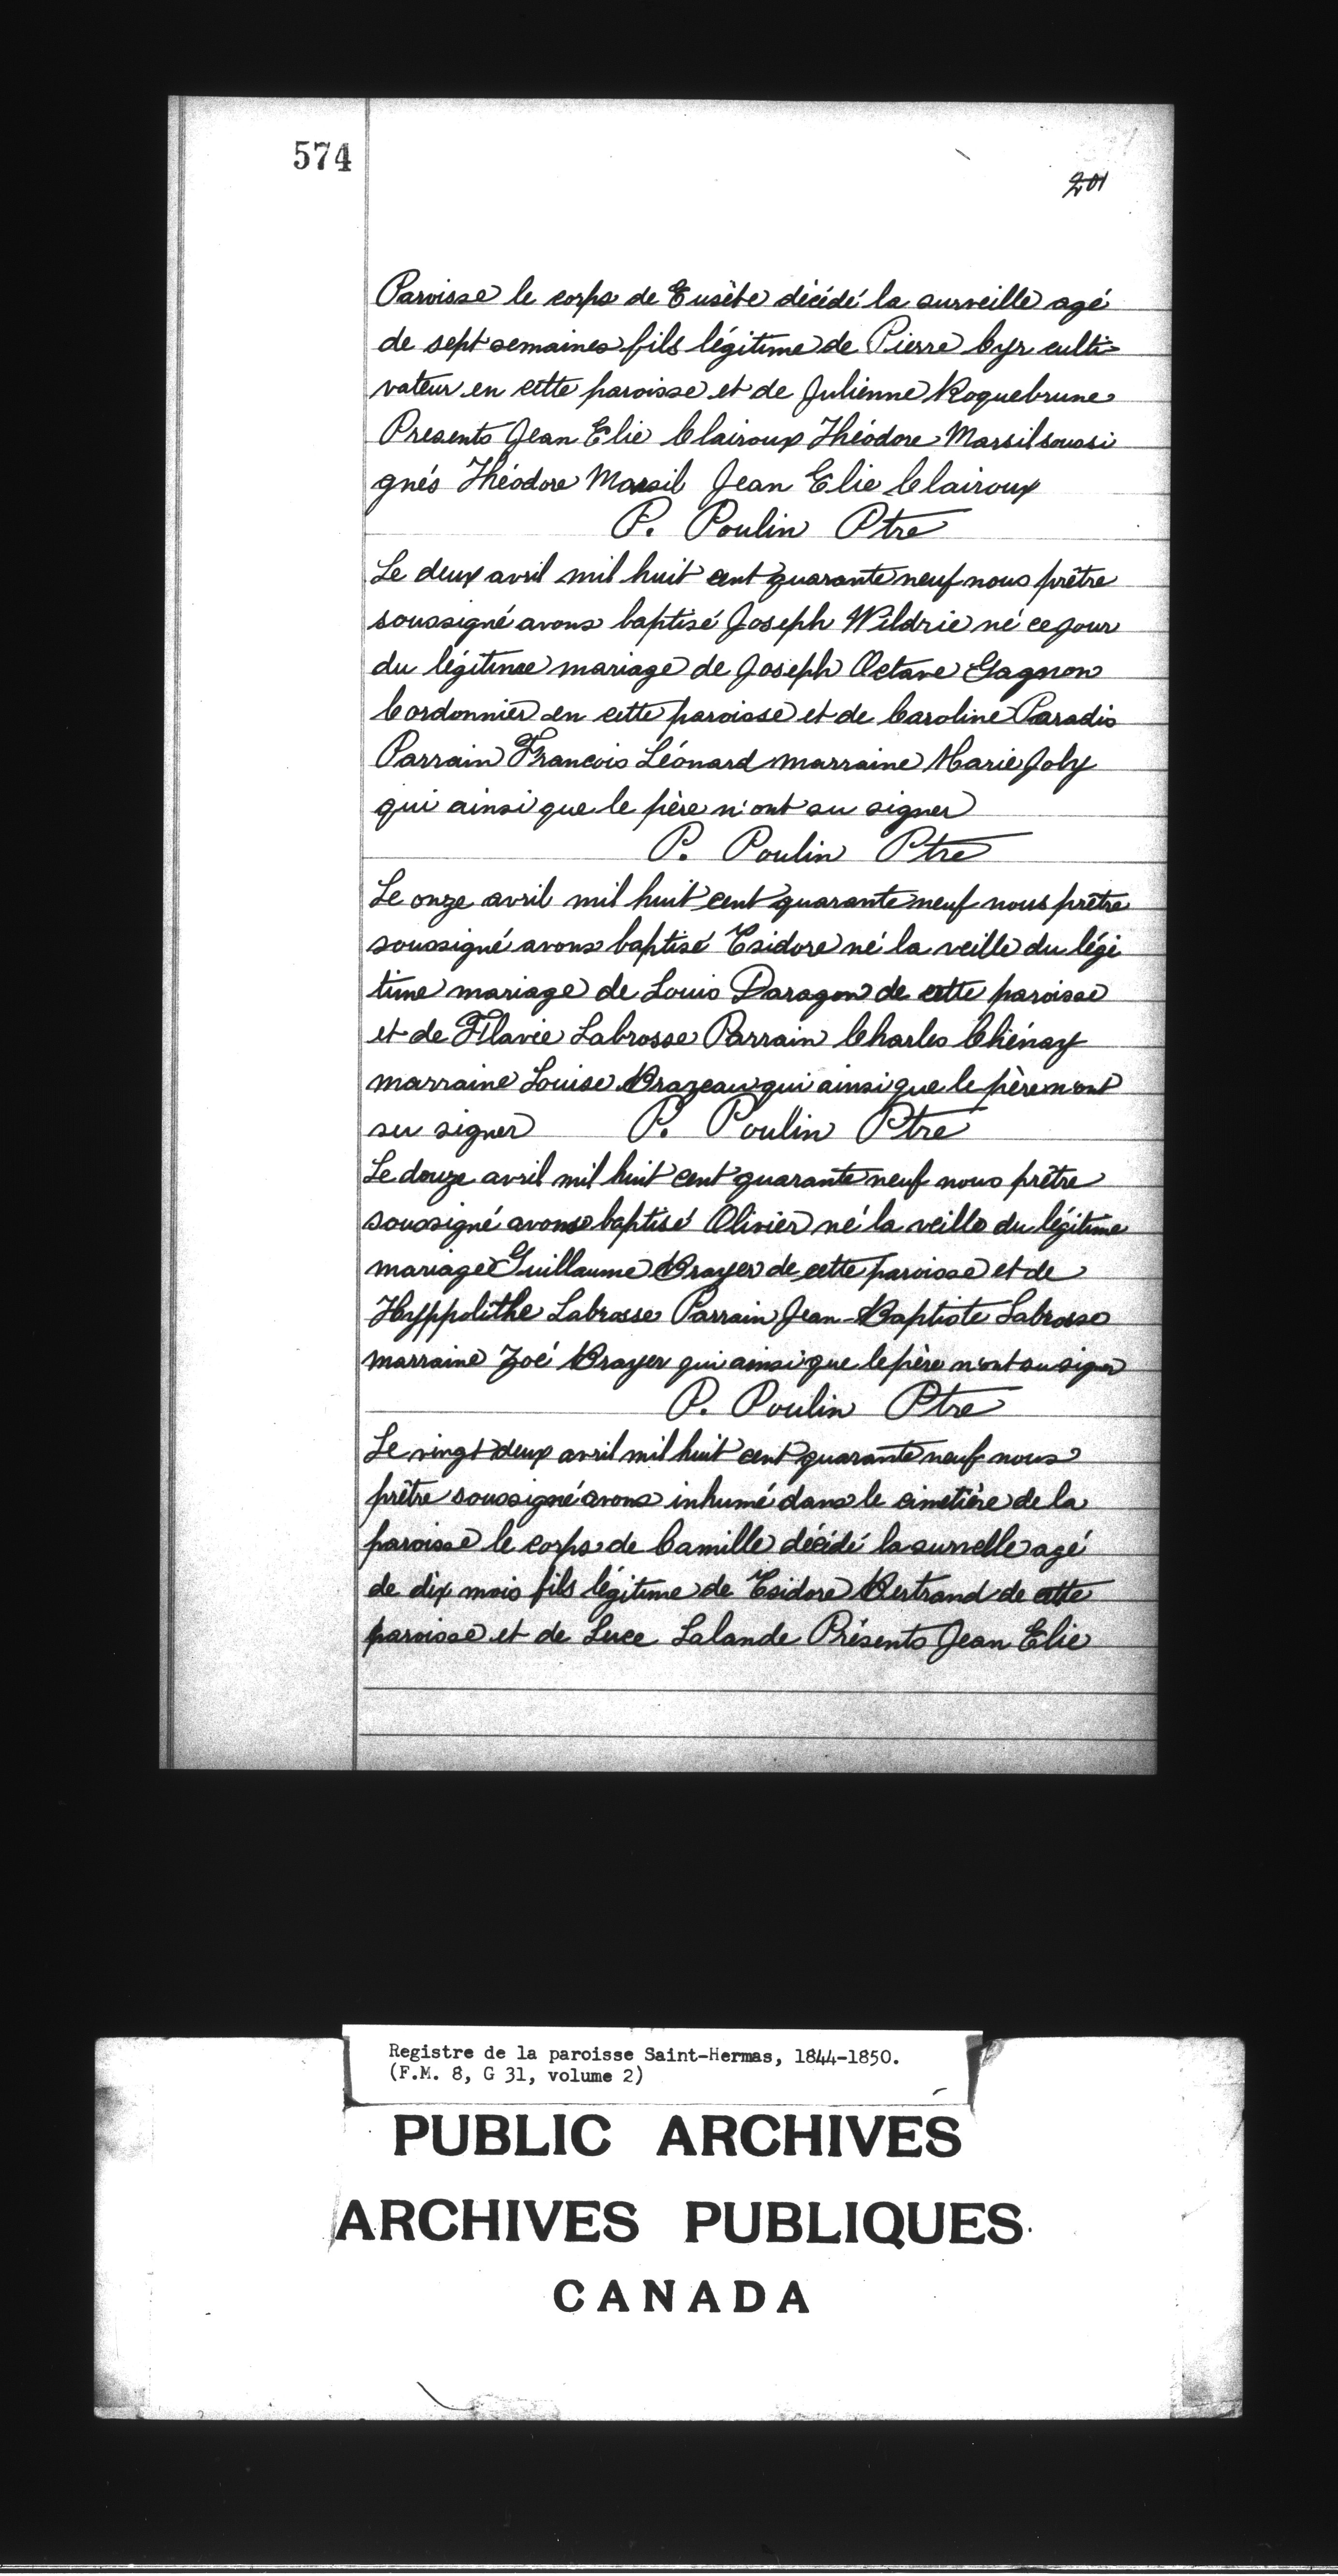 574
201
Paroisse le corps de Eusèbe décédé la surveille agé
de sept semaines fils légitime de Pierre Cyr culti-
vateur en cette paroisse et de Julienne Roquebrune
Presents Jean Elie Clairoux Théodore Marsil soussi
gnés Théodore Marsil Jean Elie Clairoux
P. Poulin Ptre
Le deux avril mil huit cent quarante neuf nous prêtre
soussigné avons baptisé Joseph Wildrie né ce jour
du légitime mariage de Joseph Octave Gagnon
Cordonnier en cette paroisse et de Caroline Paradis
Parrain Francois Léonard marraine Marie Joly
qui ainsi que le père n'ont su signer
P. Poulin Ptre
Le onze avril mil huit cent quarante neuf nous prêtre
soussigné avons baptisé Isidore né la veille du légi
time mariage de Louis Daragon de cette paroisse
et de Flavie Labrosse Parrain Charles Chénay
marraine Louise Brazeau qui ainsi que le père n'ont
su signer P. Poulin Ptre
Le douze avril mil huit cent quarante neuf nous prêtre
soussigné avons baptisé Olivier né la veille du légitime
mariage Guillaume Brayer de cette paroisse et de
Hyppolithe Labrosse Parrain Jean-Baptiste Labrosse
marraine Zoé Brayer qui ainsi que le père n'ont su signer
P. Poulin Ptre
Le vingt deux avril mil huit cent quarante neuf nous
prêtre soussigné avons inhumé dans le cimetière de la
paroisse le corps de Camille décédé la surveille agé
de dix mois fils légitime de Isidore Bertrand de cette
paroisse et de Luce Lalande Présents Jean Elie
Registre de la paroisse Saint-Hermas, 1844-1850.
(F.M. 8, G 31, volume 2)
PUBLIC ARCHIVES
ARCHIVES PUBLIQUES
CANADA